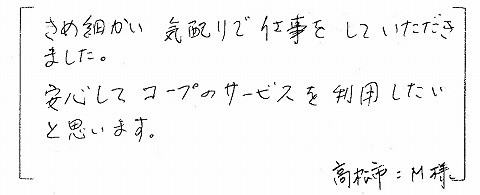 きめ細かい 気配りで仕事をしていただき
ました。
安心してコープのサービスを利用したい
と思います。
高松市:M様